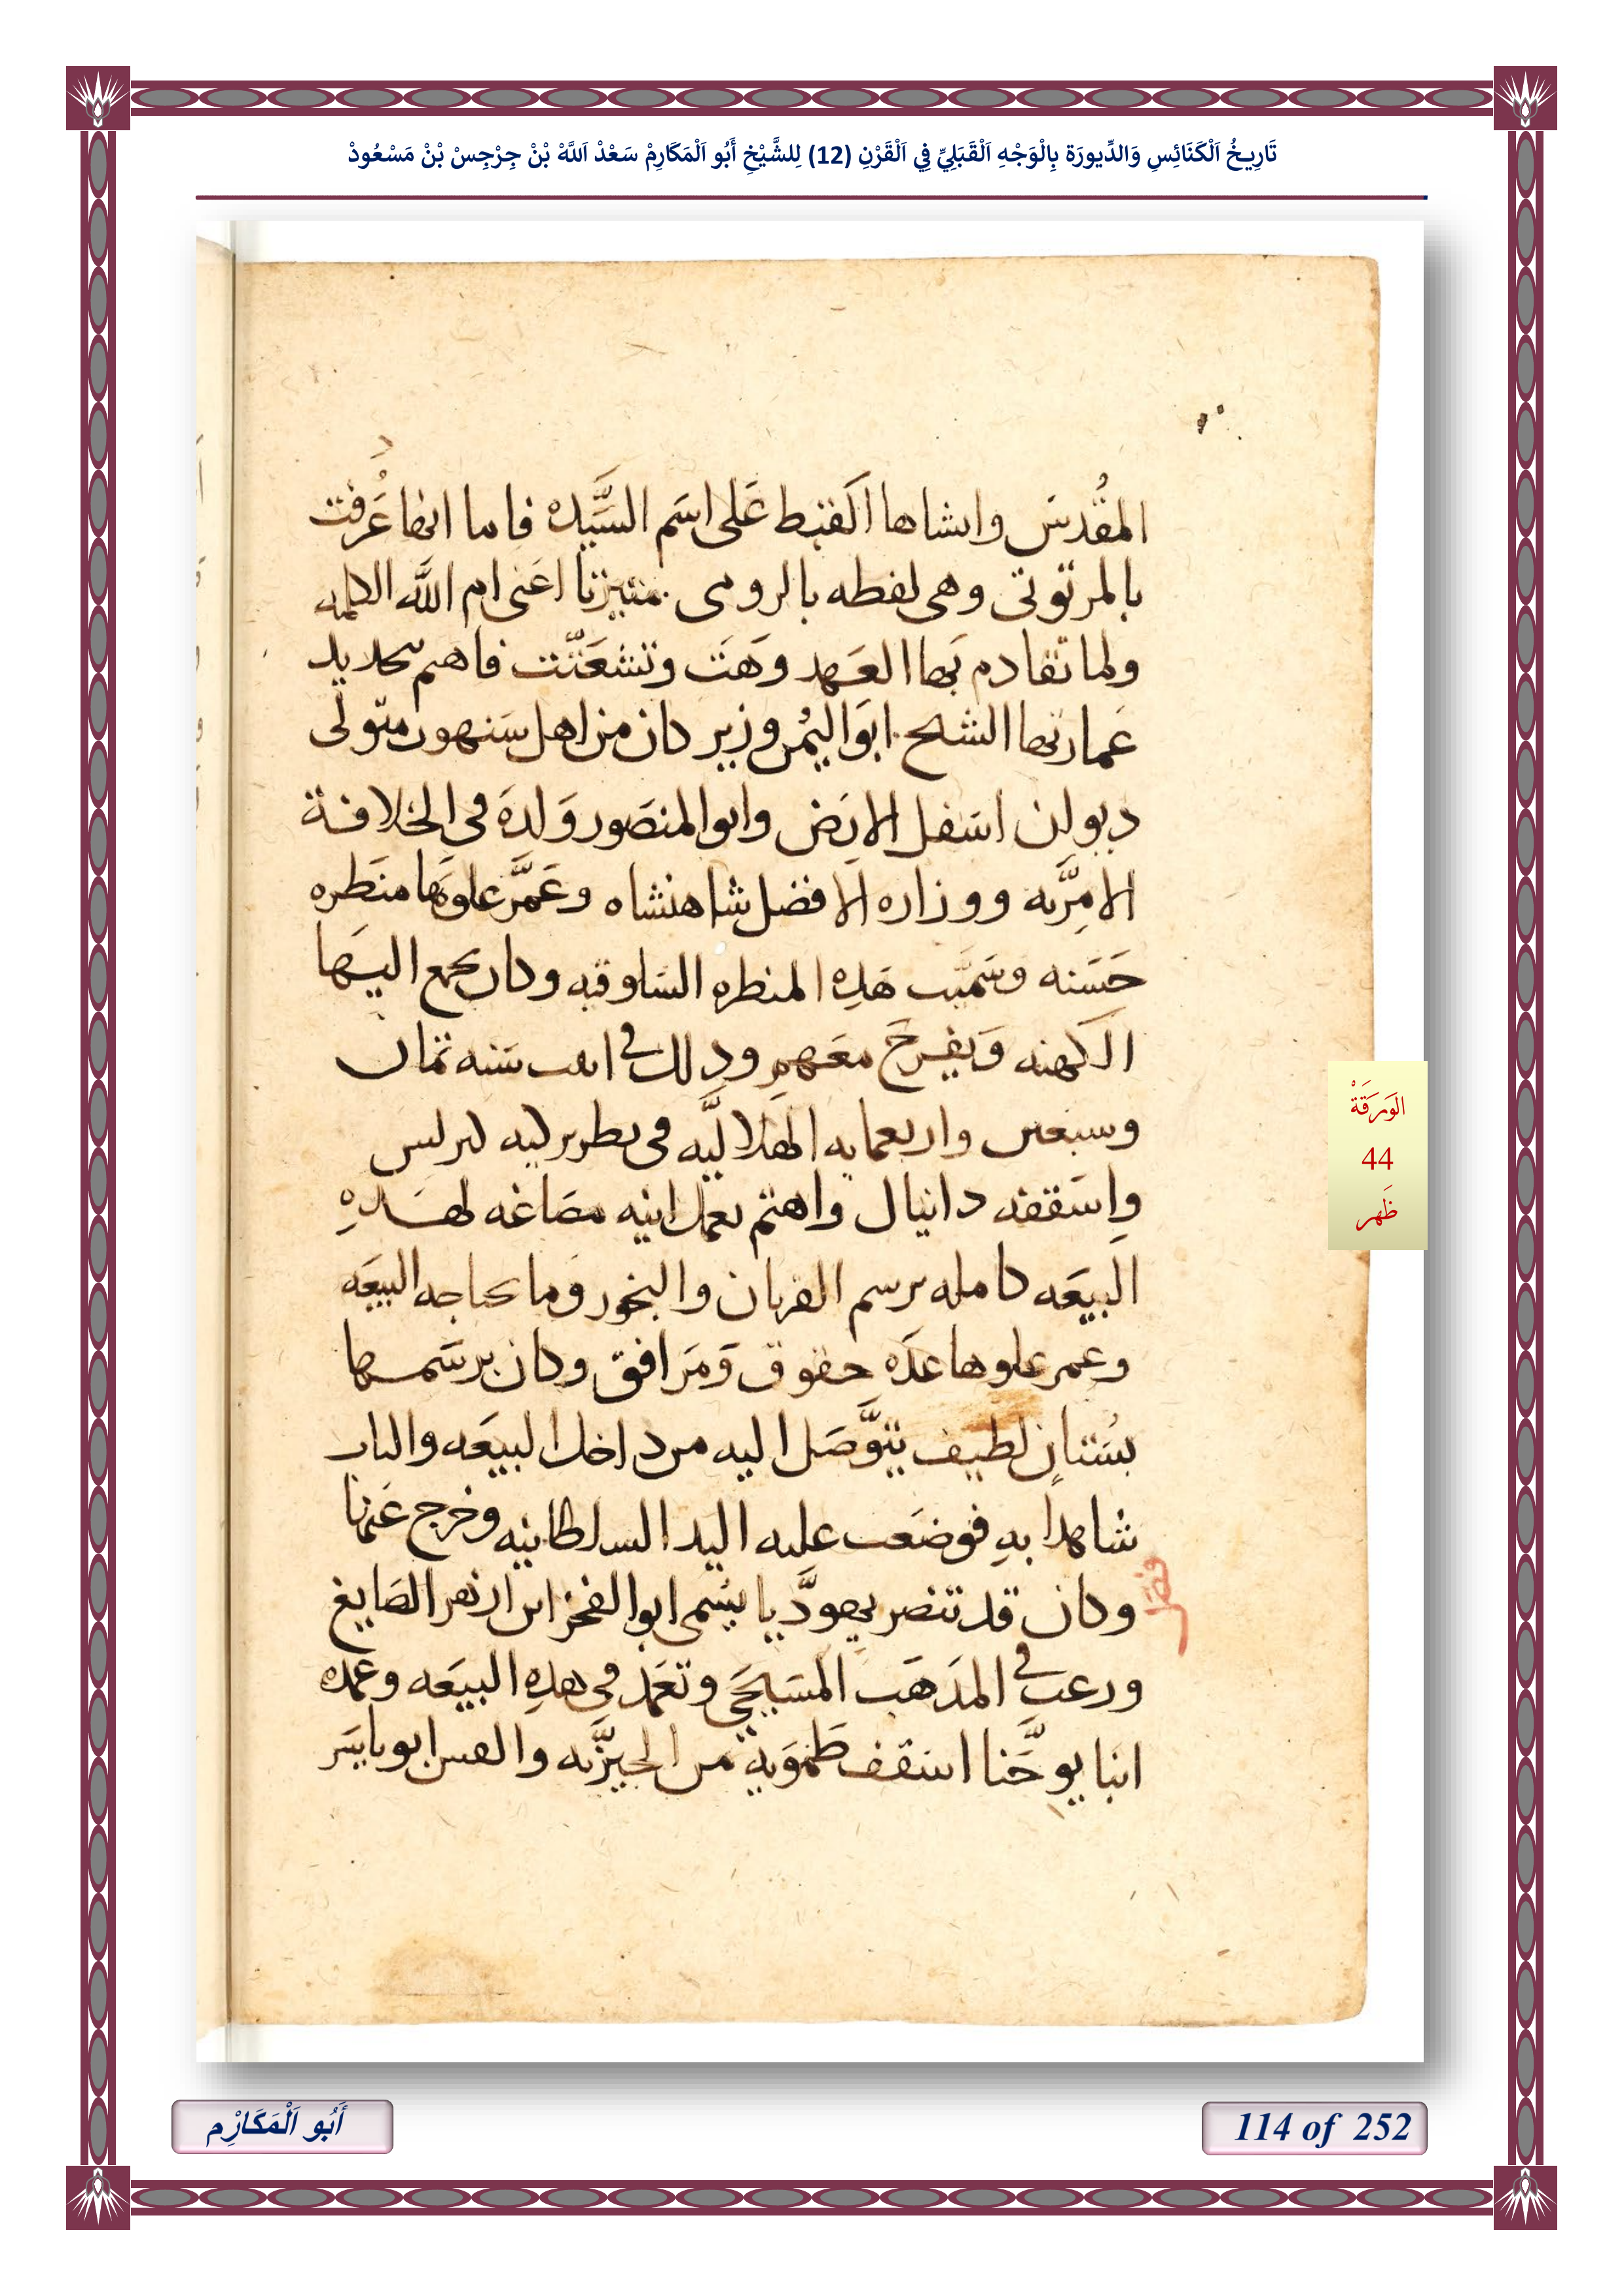 تَارِيخُ اَلْكَنَائِسِ وَالدِّيورَة بِالْوَجْهِ اَلْقَبَلِيِّ فِي اَلْقَرْنِ (12) لِلشَّيْخِ أَبُو اَلْمَكَارِمْ سَعْدْ اَللَّهْ بْنْ جِرْجِسْ بْنْ مَسْعُودْ
المقُدسَ وانشاها القبط عَلى اسَم السَّيده فاما انها عَُرفت
بالمرتوتى وهى لفظه بالرومى اعَنى ام اللَّه الكلمه
ولما تقادم بَها العَهد وَهَت وتشعَثّت فاهم بتحديد
عَمارتها الشيح ابوَ اليُمن وزير كان من اهل سَنهور متولى
ديوان اسَفل الارَض وابو المنصَور وَلدهَ فى الخلافة
الامِرَّيه ووزاره الافضل شاهنشاه وعَمَّر علوَها منَظره
حَسَنه وسَميَّت هَذِه المنظره السَاوقيه وكان يجمع اليَها
الكَهنه وَيفرحَ معَهمِ وذلك فى سَنه ثمان
وسبعين واربعمايه الهِلاليَّه فى بطريركيه كيرلس
وِاسَقفه دانيال واهتم بعمل انيه مصَاغه لهَذهِ
البيعَه كامله برسم القربان والبخور وَما تحتاجه البيعَه
وعمر علوها عدَه حقوق وَمَرافق وكان برسَمها
بسُتانٍ لطيف يتوَّصَل اليه من داخل البيعَه والباب
شاهدا بهِ فوضعَت عليه اليد السلطانيه وخرج عَنها
فصَل
وكان قد تنصر يهِودَّيا يسَمى ابوا الفخر ابن ازهر الصَايغ
ورغب فى المذَهَب المسَيحَي وتعَمَد فى هذِه البيعَه وعَمده
انبا يوحََّنا اسَقف طَموَيهِ من الجيزَّيه والقس ابو ياسَر
الوَرَقَةْ
44
ظَهر
أَبُو اَلْمَكَارِْم
114 of 252